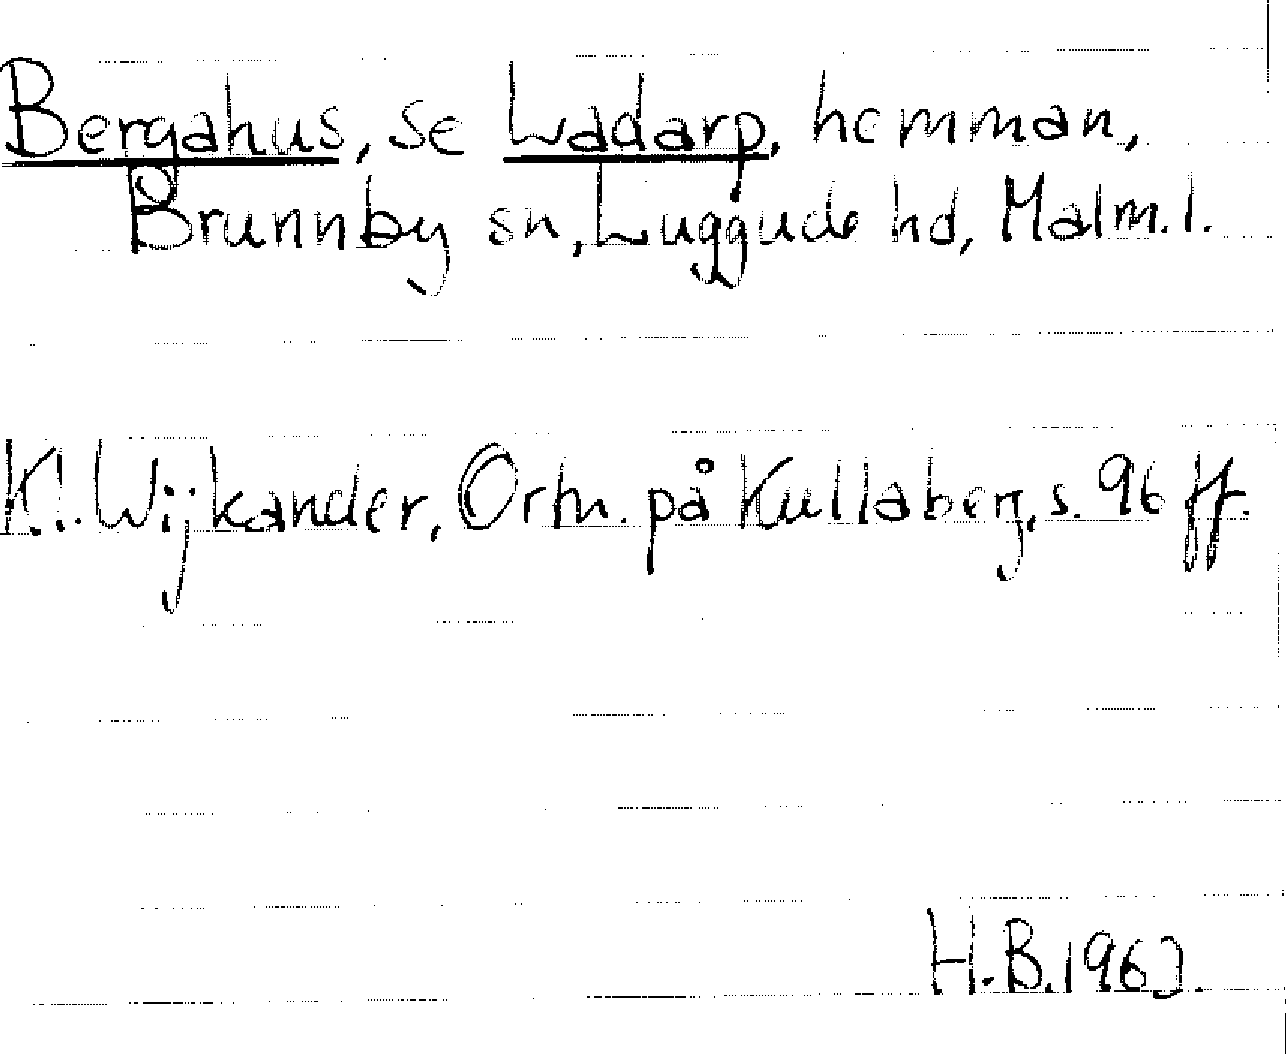 Bergahus, se Ladarp, hemman,
Brunnby sn, Luggude hd, Malm.l.
K!. Wijkander, Ortn. på Kullaberg, s. 96 ff.
H.B. 1963.